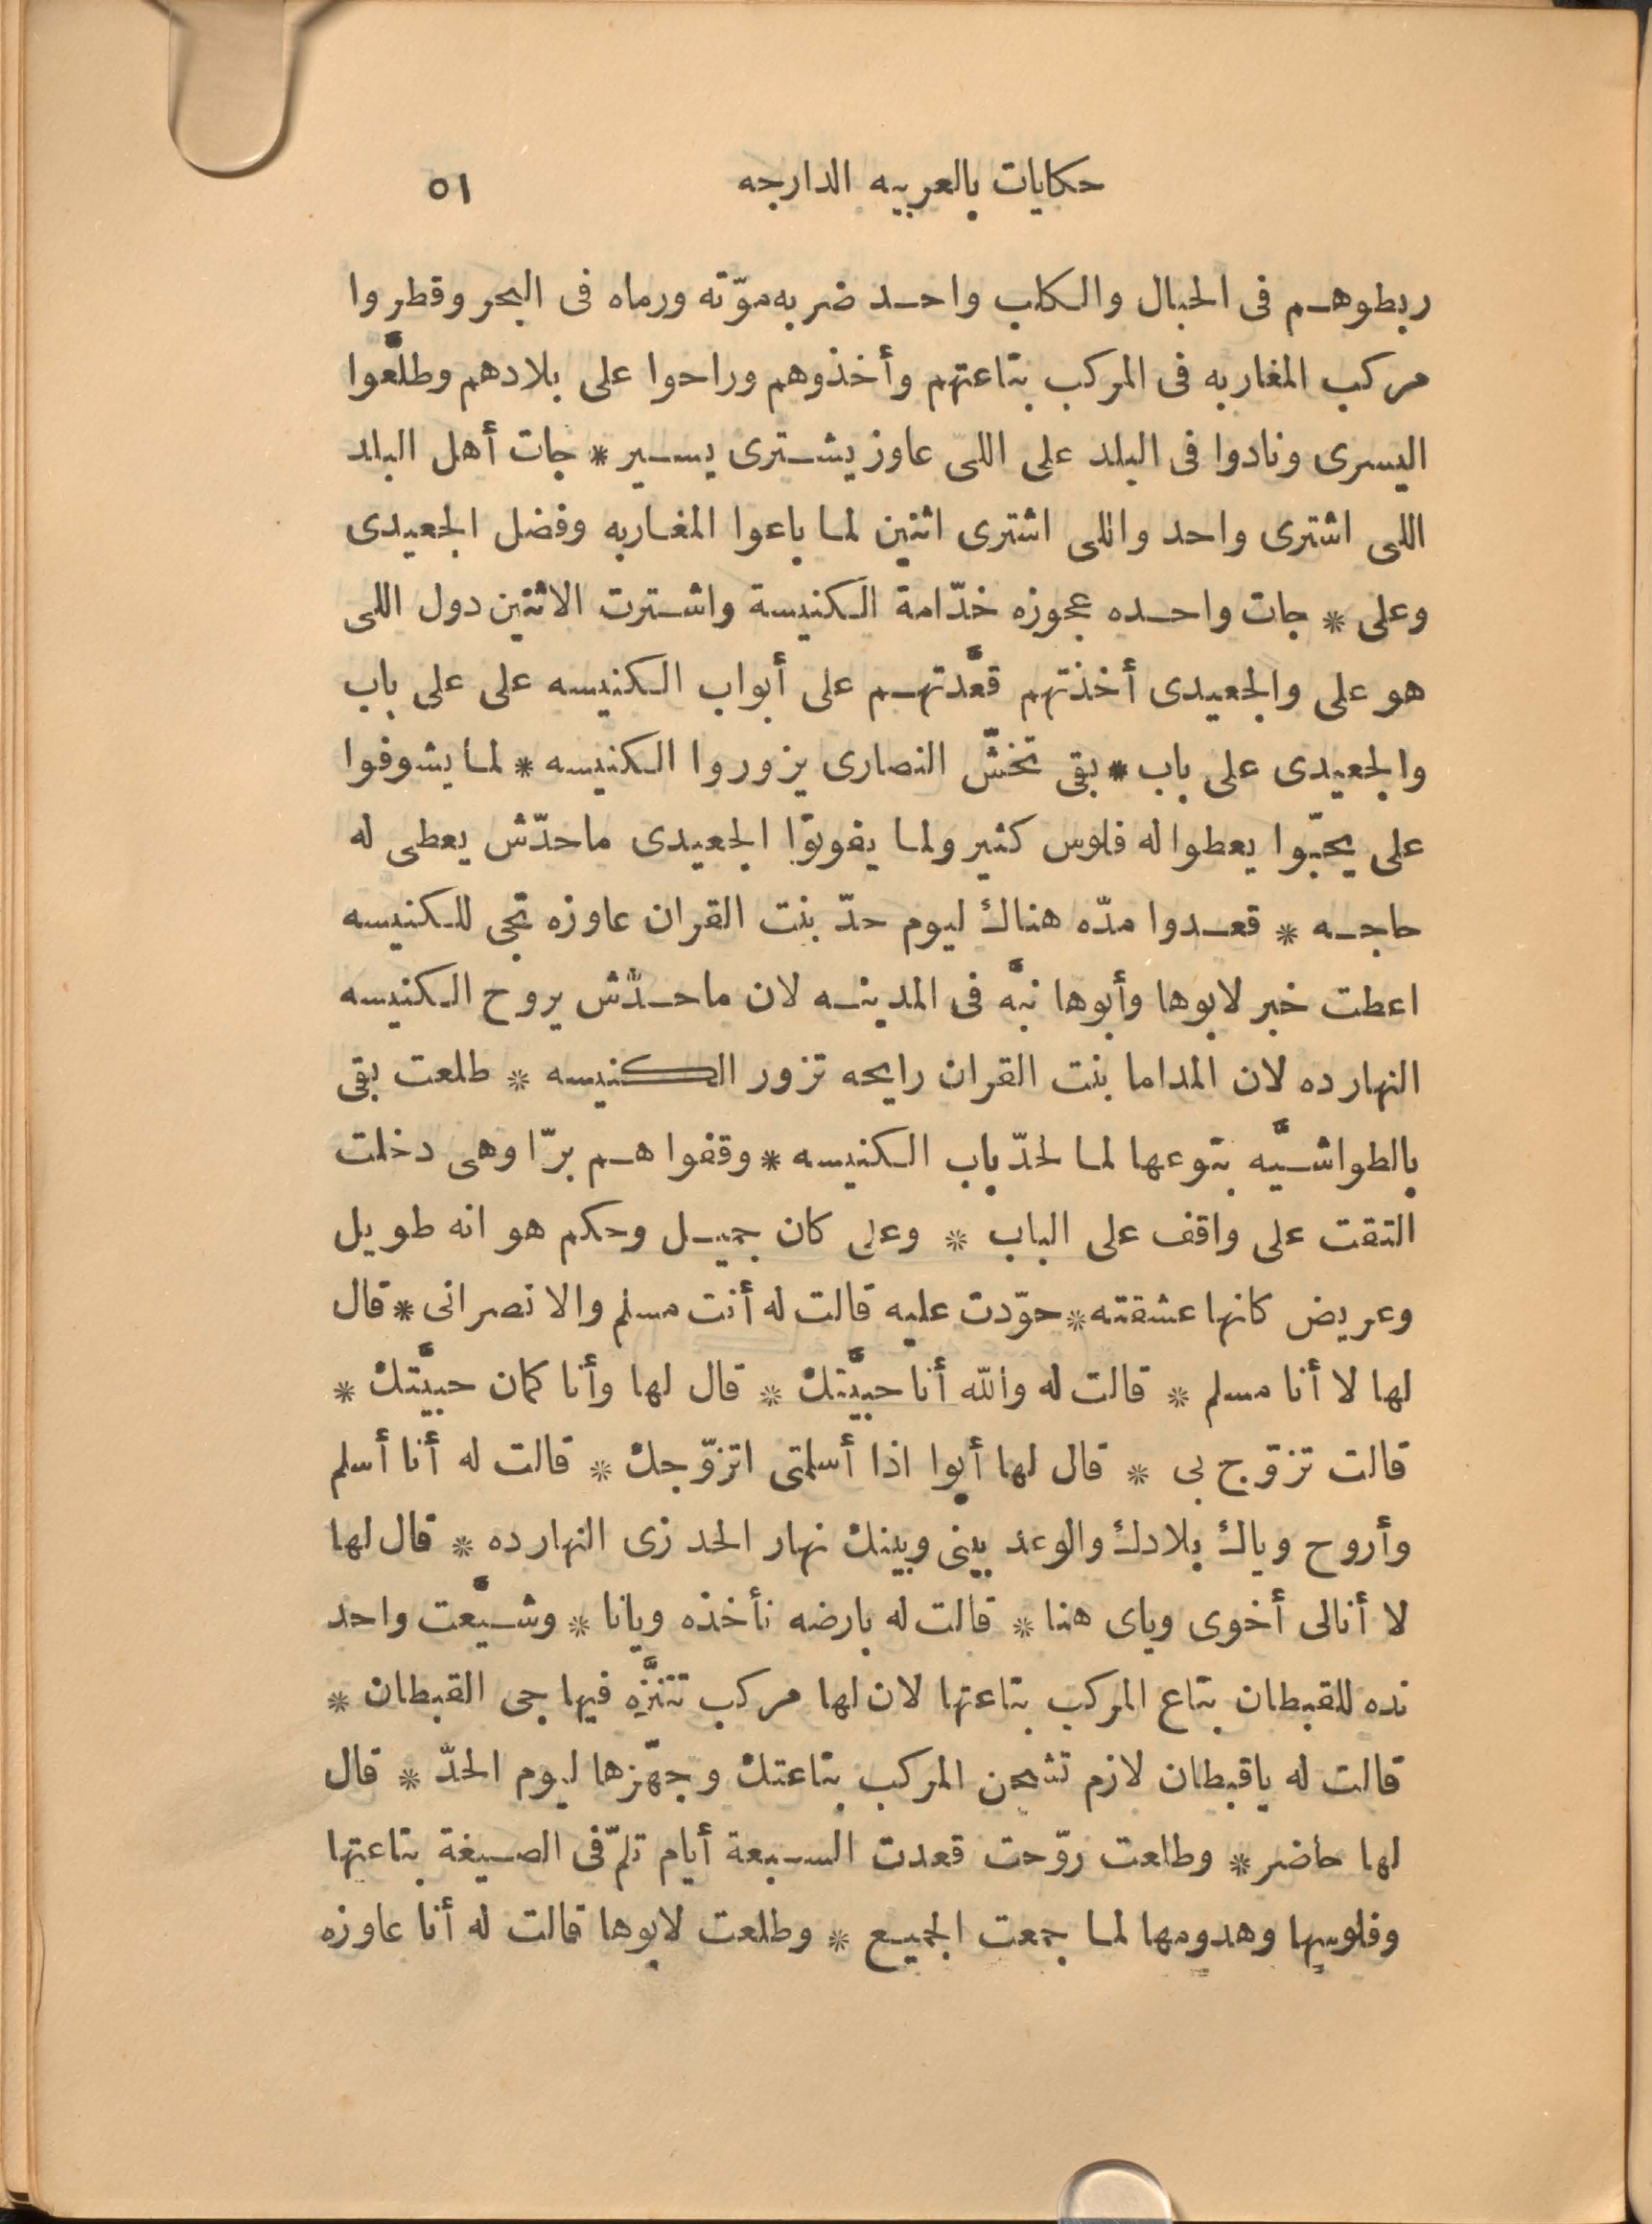 حكايات بالعربيه الدارجه ٥١
ربطوهم فى الحبال والكلب واحد ضربه موّته ورماه فى البحر وقطروا
مركب المغاربه فى المركب بتاعتهم وأخذوهم وراحوا على بلادهم وطلَّعوا
اليسرى ونادوا فى البلد على اللى عاوز يشترى يسير * جات أهل البلد
اللى اشترى واحد واللى اشترى اثنين لما باعوا المغاربه وفضل الجعيدى
وعلى * جات واحده عجوزه خدّامة الكنيسة واشترت الاثنين دول اللى
هو على والجعيدى أخذتهم قعَّدتهم على أبواب الكنيسه على على باب
والجعيدى على باب * بقى تخشّ النصارى يزوروا الكنيسه * لما يشوفوا
على يحبّوا يعطوا له فلوس كثير ولما يفوتوا الجعيدى ماحدّش يعطى له
حاجه * قعدوا مدّه هناك ليوم حدّ بنت القران عاوزه تجى للكنيسه
اعطت خبر لابوها وأبوها نبَّه فى المدينه لان ماحدّش يروح الكنيسه
النهارده لان المداما بنت القران رايحه تزور الكنيسه * طلعت بقى
بالطواشيَّه بتوعها لما لحدّ باب الكنيسه * وقفوا هم برّا وهى دخلت
التقت على واقف على الباب * وعلى كان جميل وحكم هو انه طويل
وعريض كانها عشقته * حوّدت عليه قالت له أنت مسلم والا نصرانى * قال
لها لا أنا مسلم * قالت له والله أنا حبيَّتك * قال لها وأنا كمان حبيَّتك *
قالت تزوّج بى * قال لها أيوا اذا أسلمتى اتزوّجك * قالت له أنا أسلم
وأروح وياك بلادك والوعد بينى وبينك نهار الحد زى النهارده * قال لها
لا أنالى أخوى وياى هنا * قالت له بارضه نأخذه ويانا * وشيَّعت واحد
نده للقبطان بتاع المركب بتاعتها لان لها مركب تتنزَّه فيها جى القبطان *
قالت له ياقبطان لازم تشحن المركب بتاعتك وجهّزها ليوم الحدّ * قال
لها حاضر * وطلعت روّحت قعدت السبعة أيام تلمّ فى الصيغة بتاعتها
وفلوسها وهدومها لما جمعت الجميع * وطلعت لابوها قالت له أنا عاوزه